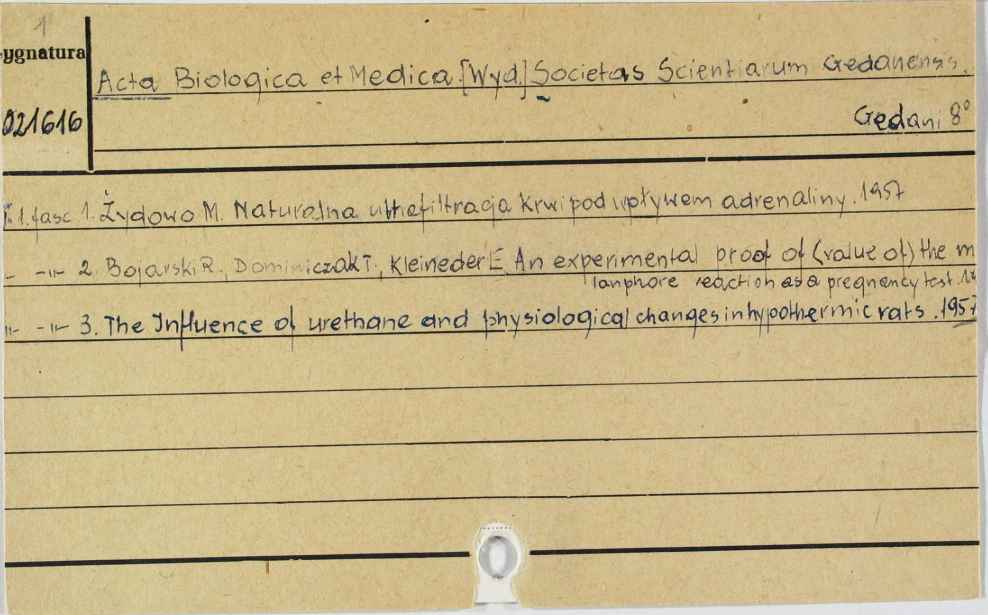 1
ygnatura
Acta Biologica et Medica. [Wyd.] Societas Scientiarum Gedanensis.
021616
Gedani 8°
1. fasc 1. Żydowo M. Naturalna ultrafiltracja krwi pod wpływem adrenaliny. 1957
- -"- 2. Bojarski R. Dominiczak T., Kleineder E. An experimental proof of (value of) the m
lanphore reaction as a pregnancy test.
"- -"- 3. The Influence of urethane and physiological changes in hypothermic rats. 1957